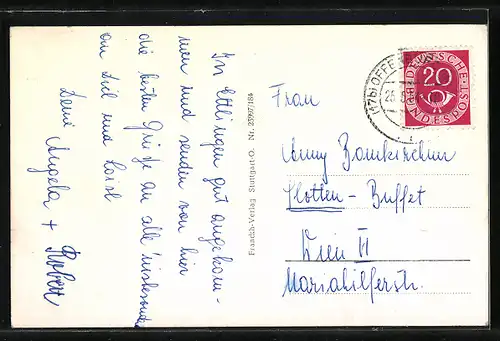 In Ettlingen gut angekom-
men und senden von hier
die besten Grüße an alle insbesondere
an Dich und Horst
Deine Angela + Robert
Franckh-Verlag Stuttgart-O. Nr. 2397/186
(17b) OFFE
DEUTSCHE POST
20
BUNDESPOST
Frau
Anny
Flotten-Buffet
Wien VI
Mariahilferstr.